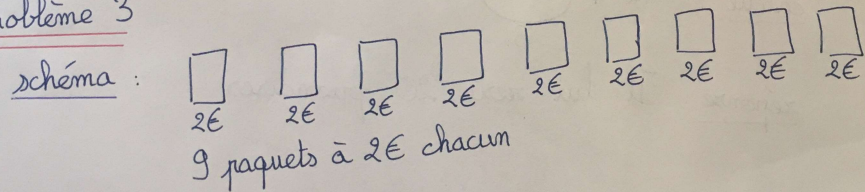 oblème 3
schéma :
2€ 2€ 2€ 2€ 2€ 2€ 2€ 2€ 2€
9 paquets à 2€ chacun